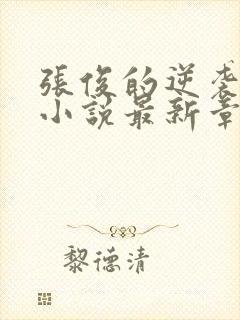 張俊的逆袭
小説最新章
黎德清